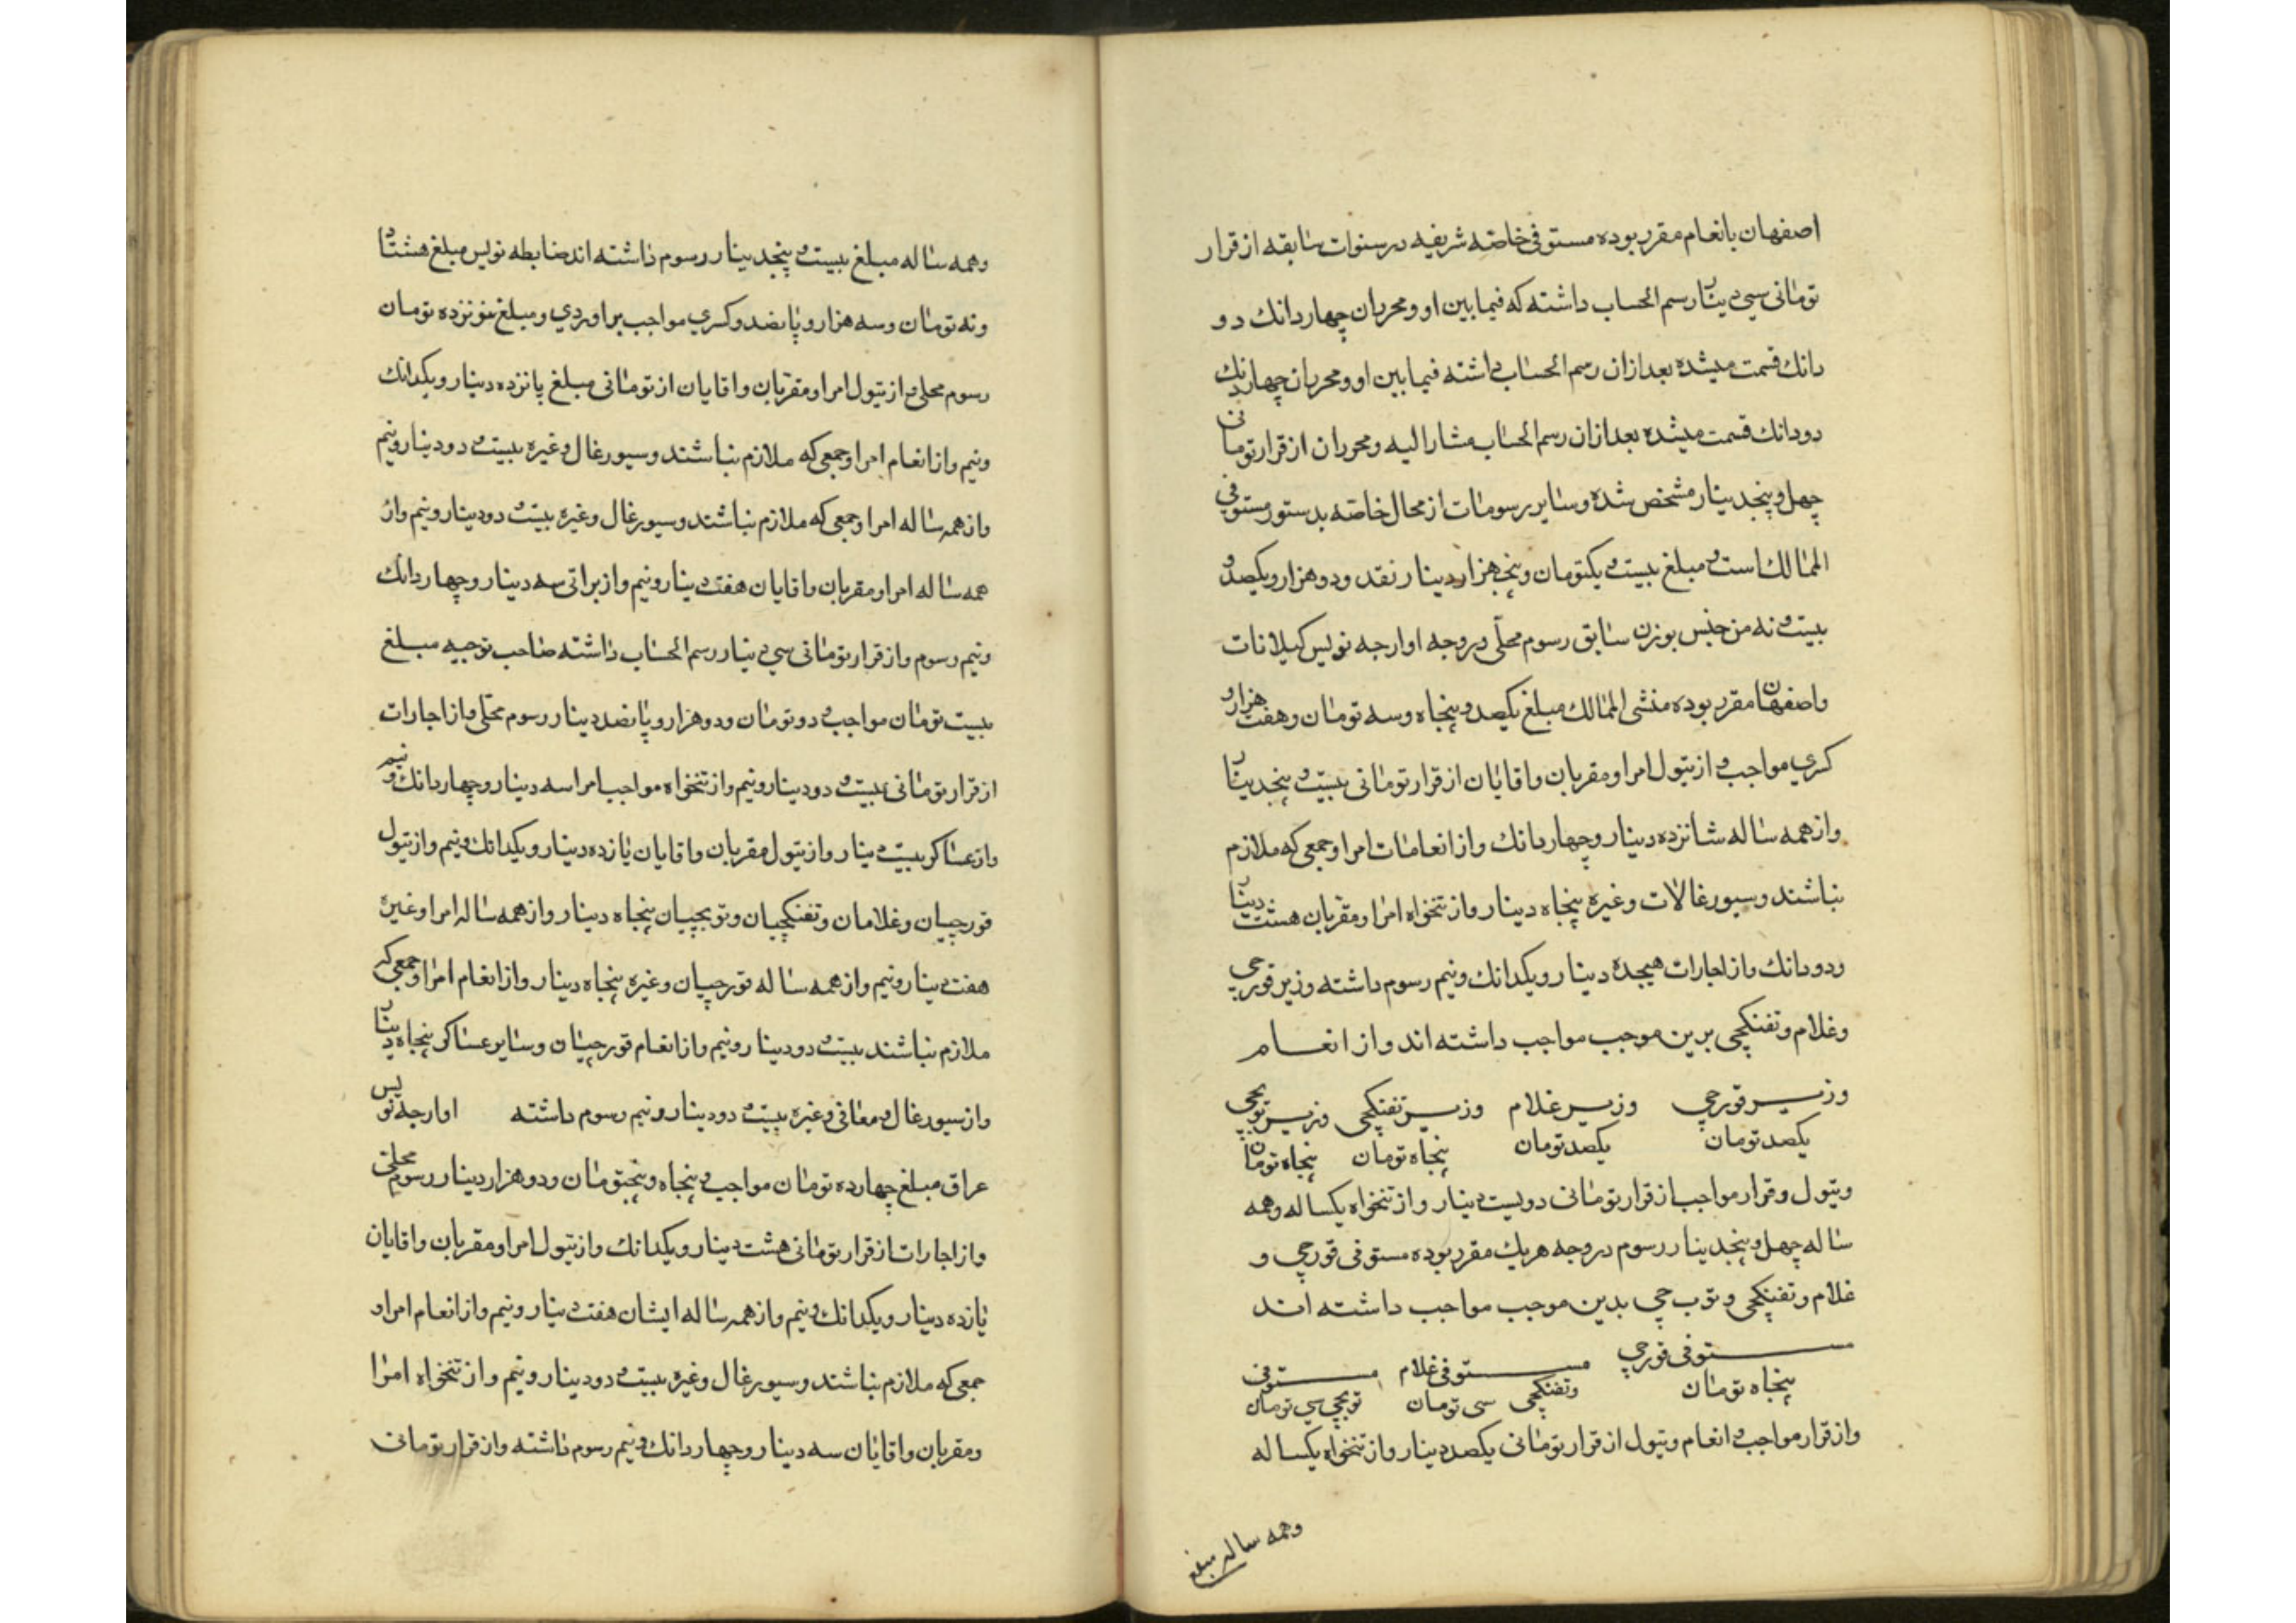 اصفهان بانعام مقرر بوده مستوفی خاصّه شریفه در سنوات سابقه از قرار
تومانی سی دینار رسم الحساب داشته که فیمابین او و محرران چهار دانك دو
دانك قسمت میشده بعد ازان رسم الحساب داشته فیمابین او و محرران چهار دانك
دودانك قسمت میشده بعد ازان رسم الحساب مشار الیه و محرران از قرار تومانی
چهل و پنجدینار مشخص شده و سایر رسومات از محال خاصّه بدستور مستوفی
الممالك است و مبلغ بیست و یکتومان و پنجهزار دینار نقد و دو هزار و یکصد و
بیست و نه من جنس بوزن سابق رسوم محلّی در وجه اوارجه نویس کیلانات
واصفهان مقرر بوده منشی الممالك مبلغ یکصد و پنجاه و سه تومان و هفت هزار و
کری مواجب و از تیول امرا و مقربان و اقایان از قرار تومانی بیست و پنجدینار
و از همه ساله شانزده دینار و چهار دانك و از انعامات امرا و جمعی که ملازم
نباشند و سیورغالات و غیره پنجاه دینار و از تنخواه امرا و مقربان هشت دینار
و دو دانك و از اجارات هیجده دینار و یکدانك و نیم رسوم داشته وزیر قورچی
و غلام و تفنکچی برین موجب مواجب داشته اند و از انعام
وزیر قورچی وزیر غلام وزیر تفنکچی وزیر توپچی
یکصد تومان یکصد تومان پنجاه تومان پنجاه تومان
و تیول و قرار مواجب از قرار تومانی دویست دینار و از تنخواه یکساله و همه
ساله چهل و پنجدینار رسوم در وجه هریك مقرر بوده مستوفی قورچی و
غلام و تفنکچی و توب چی بدین موجب مواجب داشته اند
مستوفی قورچی مستوفی غلام مستوفی
پنجاه تومان و تفنکچی سی تومان توپچی سی تومان
و از قرار مواجب و انعام و تیول از قرار تومانی یکصد دینار و از تنخواه یکساله
وهمه ساله مبلغ
وهمه ساله مبلغ بیست و پنجدینار رسوم داشته اند ضابطه نویس مبلغ هشتاد
ونه تومان و سه هزار و پانصد و کسری مواجب براوردی و مبلغ نوزده تومان
رسوم محلی و از تیول امرا و مقربان و اقایان از تومانی مبلغ پانزده دینار و یکدانك
ونیم و از انعام امرا و جمعی که ملازم نباشند و سیورغال و غیره بیست و دو دینار و نیم
و از همه ساله امرا و جمعی که ملازم نباشند و سیورغال و غیره بیست و دو دینار و نیم و از
همه ساله امرا و مقربان و اقایان هفت دینار و نیم و از براتی سه دینار و چهار دانك
ونیم رسوم و از قرار تومانی سی دینار رسم الحساب داشته صاحب توجیه مبلغ
بیست تومان مواجب و دو تومان و دو هزار و پانصد دینار رسوم محلّی و از اجارات
از قرار تومانی بیست و دو دینار و نیم و از تنخواه مواجب امرا سه دینار و چهار دانك و نیم
و از عساکر بیست دینار و از تیول مقربان و اقایان یازده دینار و یکدانك و نیم و از تیول
قورچیان و غلامان و تفنکچیان و توپچیان پنجاه دینار و از همه ساله امرا و غیره
هفت دینار و نیم و از همه ساله قورچیان و غیره پنجاه دینار و از انعام امرا و جمعی که
ملازم نباشند بیست و دو دینار و نیم و از انعام قورچیان و سایر عساکر پنجاه دینار
و از سیورغال و معافی و غیره بیست و دو دینار و نیم رسوم داشته اوارجه نویس
عراق مبلغ چهارده تومان مواجب و پنجاه و پنجتومان و دو هزار دینار رسوم محلی
و از اجارات از قرار تومانی هشت دینار و یکدانك و از تیول امرا و مقربان و اقایان
یازده دینار و یکدانك و نیم و از همه ساله ایشان هفت دینار و نیم و از انعام امرا و
جمعی که ملازم نباشند و سیورغال و غیره بیست و دو دینار و نیم و از تنخواه امرا
و مقربان و اقایان سه دینار و چهار دانك و نیم رسوم داشته و از قرار تومانی